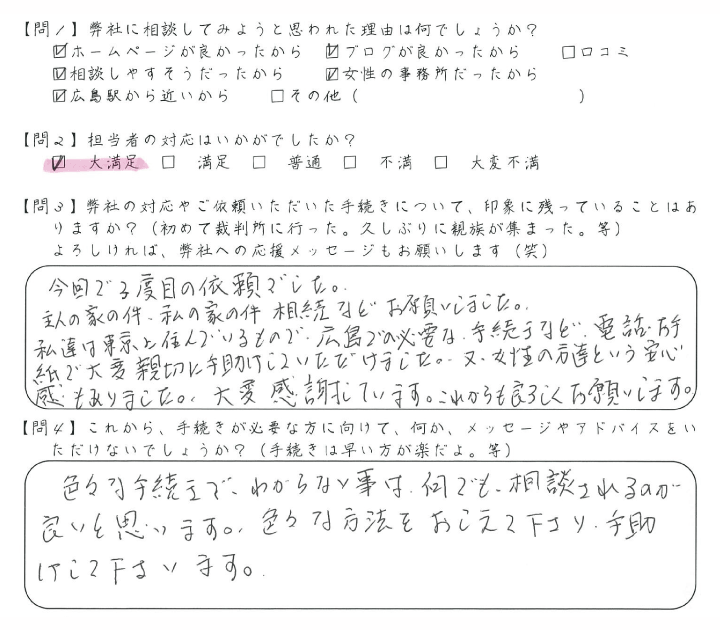 【問1】弊社に相談してみようと思われた理由は何でしょうか？
☑ホームページが良かったから ☑ブログが良かったから □口コミ
☑相談しやすそうだったから ☑女性の事務所だったから
☑広島駅から近いから □その他（ ）
【問2】担当者の対応はいかがでしたか？
☑ 大満足 □ 満足 □ 普通 □ 不満 □ 大変不満
【問3】弊社の対応やご依頼いただいた手続きについて、印象に残っていることはあ
りますか？（初めて裁判所に行った。久しぶりに親族が集まった。等）
よろしければ、弊社への応援メッセージもお願いします（笑）
今回で3度目の依頼でした。
主人の家の件、私の家の件 相続などお願いしました。
私達は東京に住んでいるもので、広島での必要な、手続きなど、電話、お手
紙で大変親切に手助けしていただけました。又、女性の方達という安心
感もありました。大変感謝しています。これからも良ろしくお願いします。
【問4】これから、手続きが必要な方に向けて、何か、メッセージやアドバイスをい
ただけないでしょうか？（手続きは早い方が楽だよ。等）
色々な手続きで、わからない事は、何でも、相談されるのが
良いと思います。色々な方法をおしえて下さり、手助
けして下さいます。